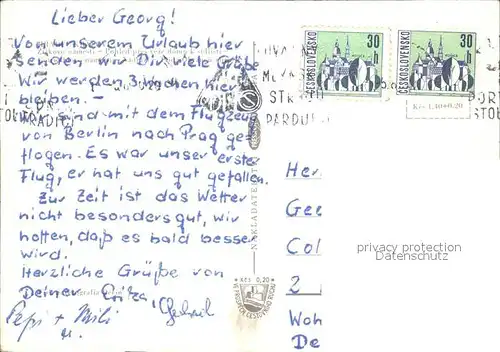 Lieber Georg!
Von unserem Urlaub hier
senden wir Dir viele Grüße
Wir werden 3 Wochen hier
bleiben. -
sind mit dem Flugzeug
von Berlin nach Prag ge-
flogen. Es war unser erster
Flug, er hat uns gut gefallen.
Zur Zeit ist das Wetter
nicht besonders gut, wir
hoffen, daß es bald besser
wird.
Herzliche Grüße von
Deiner
Pepi + Mili
ČESKOSLOVENSKO
30 h
ČESKOSLOVENSKO
30 h
PARDU
Kčs 1,40+0,20
Kčs 0,20
Her
Gee
Col
2
Woh
De
privacy protection
Datenschutz